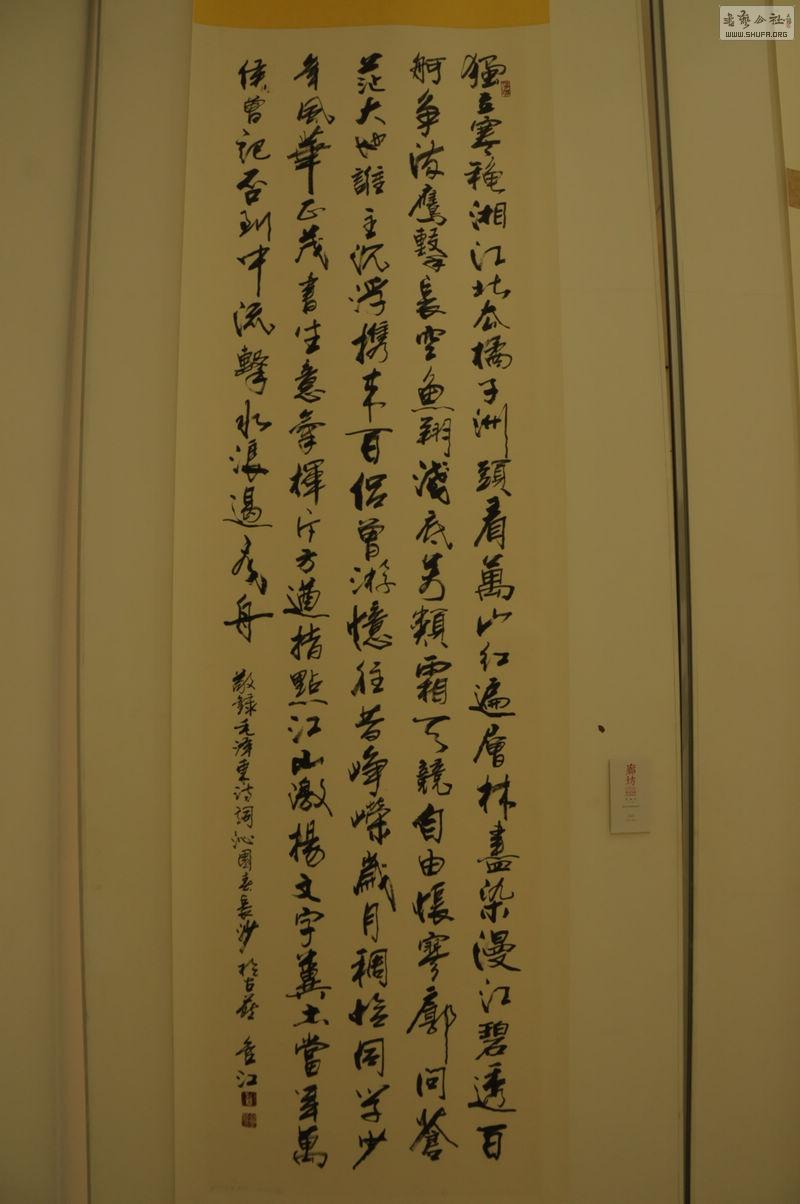 書藝公社
WWW.SHUFA.ORG
獨立寒穐湘江北去橘子洲頭看萬山红遍層林盡染漫江碧透百
舸争流鷹擊長空魚翔淺底万類霜天競自由悵寥廓问蒼
茫大地誰主沉浮携来百侣曾游憶往昔峥嶸歲月稠恰同学少
年風華正茂書生意氣揮斥方遒指點江山激揚文字糞土當年萬
侯曾记否到中流擊水浪遏飛舟
敬録毛泽東诗詞沁園春長沙於古燕
廊坊